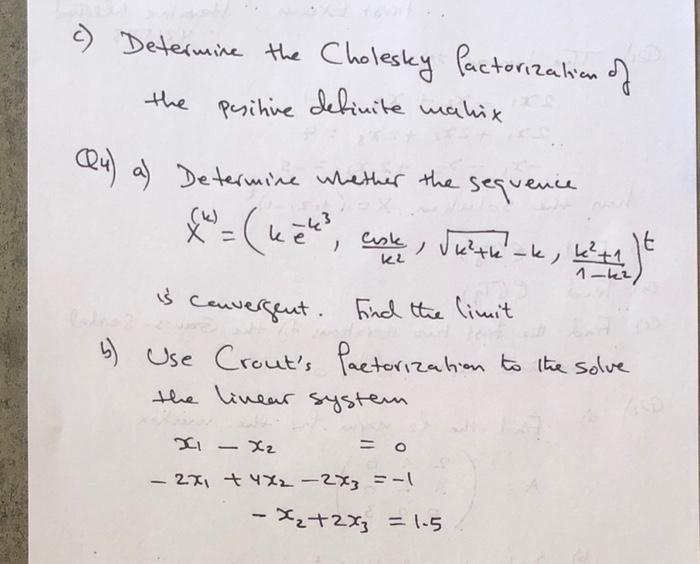 c) Determine the Cholesky factorization of
the positive definite matrix
Q4) a) Determine whether the sequence
X^(k) = ( k e^-k^3, cos k / k^2, √(k^2+k) - k, (k^2+1)/(1-k^2) )^t
is convergent. Find the limit
b) Use Crout's factorization to the solve
the linear system
x1 - x2 = 0
- 2x1 + 4x2 - 2x3 = -1
- x2 + 2x3 = 1.5